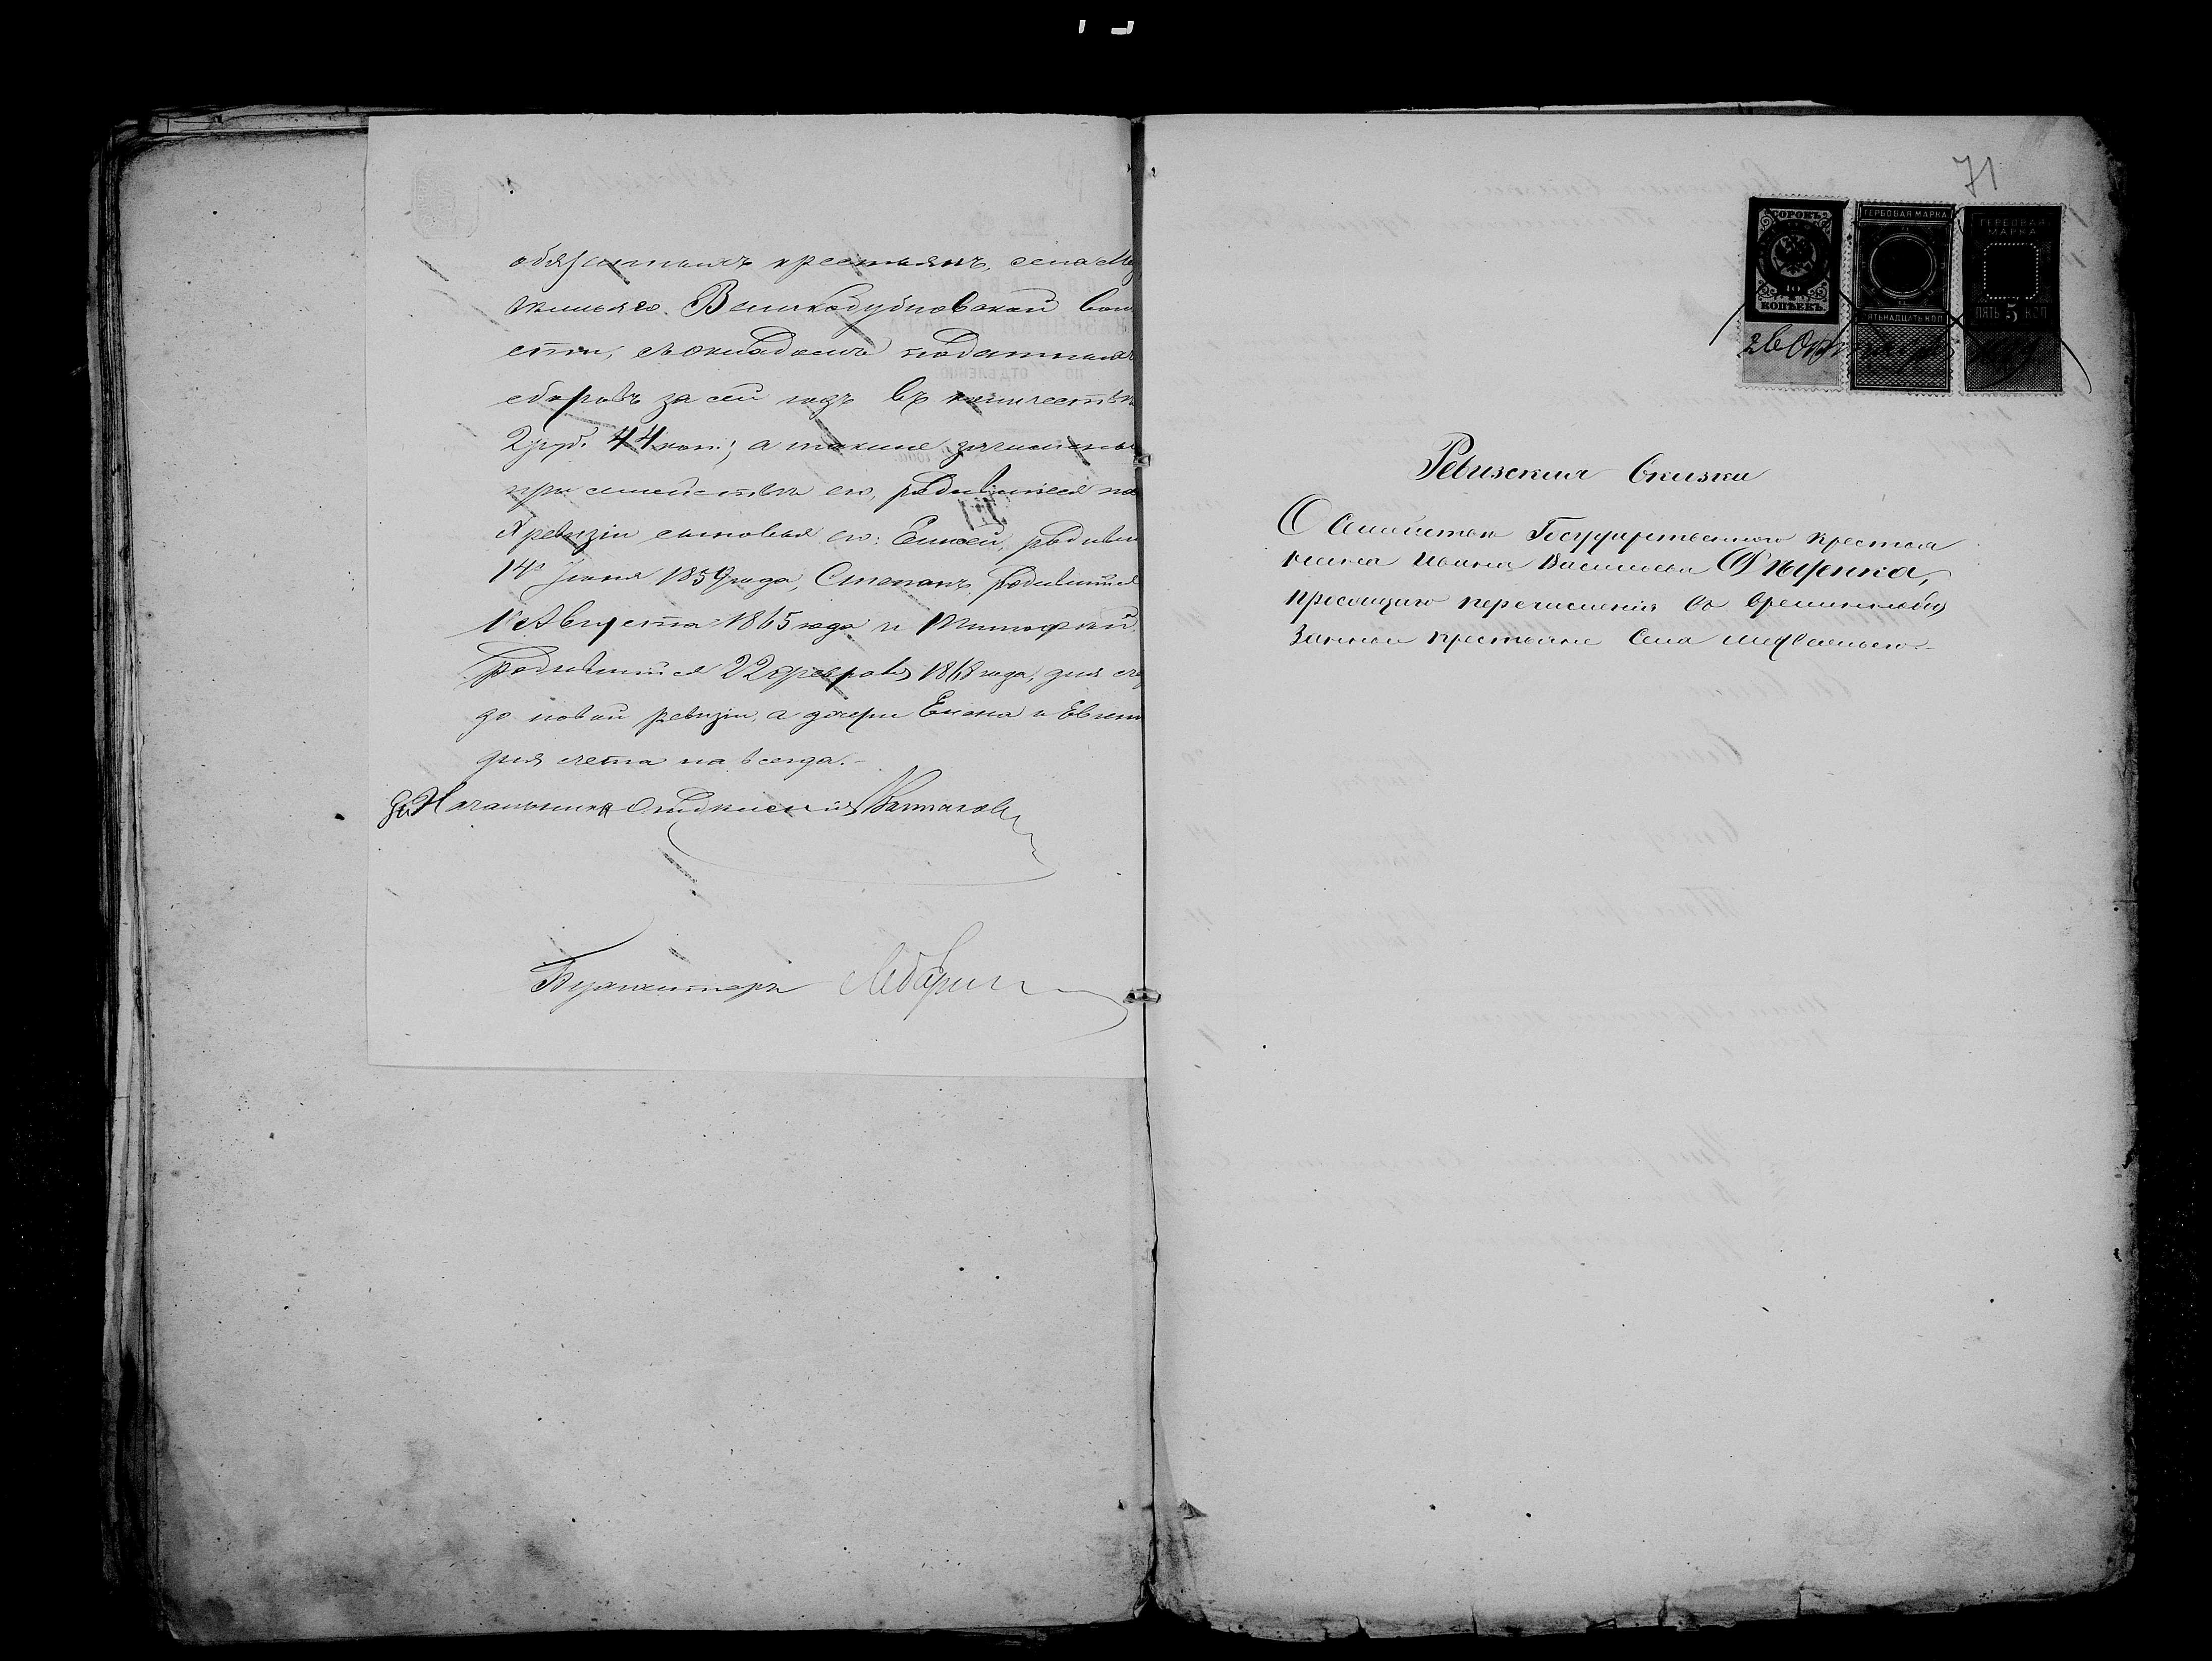 обязанныхъ крестьянъ, села Ме
жильяго. Великобубновской воло
сти, съ окладомъ податныхъ
сборовъ за сей годъ въ количествѣ
2 руб. 44 коп.; а также зачислены
при семействѣ его, родившіеся пос
Х ревизіи сыновья его: Елисей, родивш
14го Іюня 1859 года, Степанъ, родившійся
1го Августа 1865 года и Тимофей
родившійся 22 февраля 1868 года, для сче
до новой ревизіи, а дочери Елена и Евген
для счета на всегда.-
Начальникъ Отдѣленія
Бухгалтеръ
71
СОРОКЪ
40
КОПѢЕКЪ
ГЕРБОВАЯ МАРКА
ПЯТЬНАДЦАТЬ КОП
ГЕРБОВАЯ
МАРКА
ПЯТЬ 5 КОП
Ревизская Сказка
О Семействѣ Государственного крестья
нина Ивана Васильева
просящаго перечисленія во временнообя
занные крестьяне села